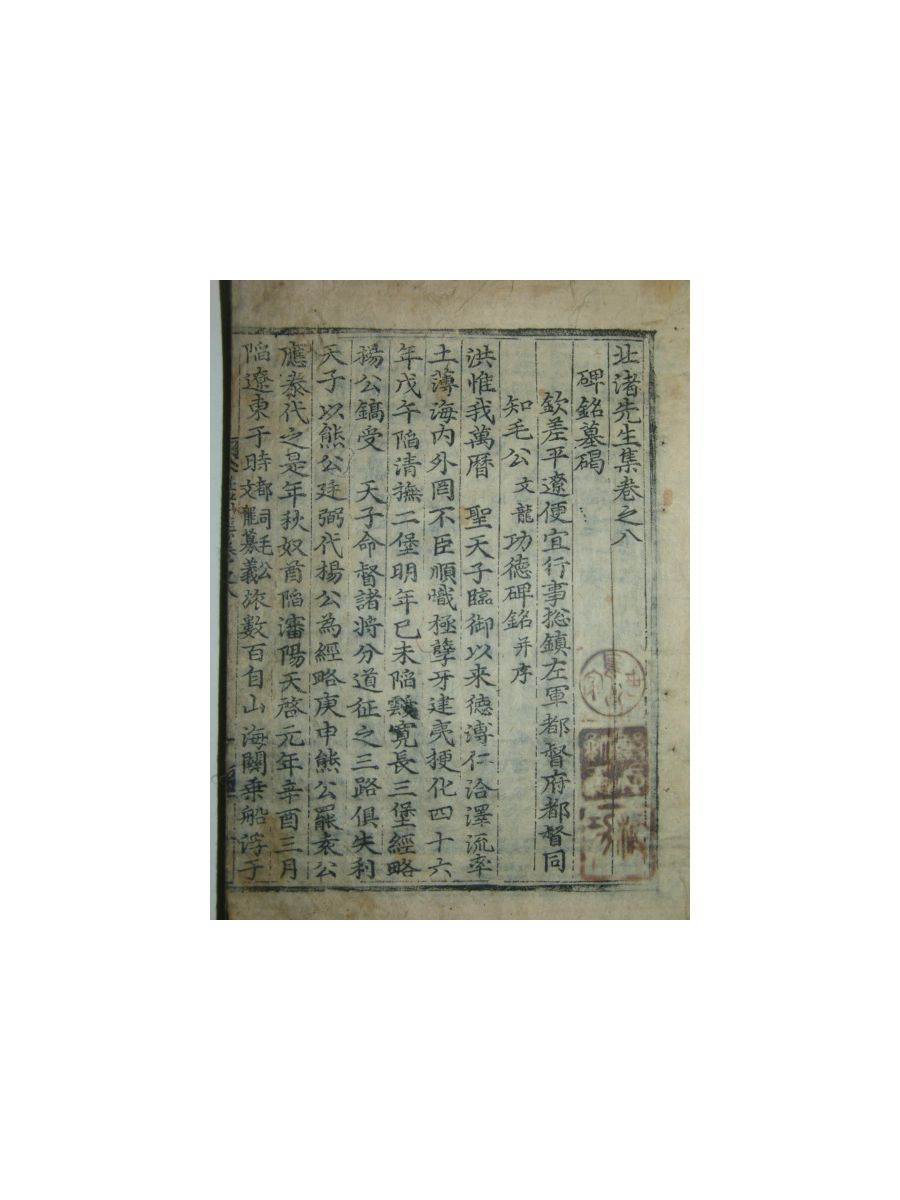 北渚先生集卷之八
碑銘墓碣
欽差平遼便宜行事摠鎮左軍都督府都督同
知毛公文龍功德碑銘并序
洪惟我萬曆 聖天子臨御以來德溥仁洽澤流率
土薄海內外罔不臣順曦極孽牙建夷梗化四十六
年戊午陷清撫二堡明年己未陷靉寬長三堡經略
楊公鎬受 天子命督諸將分道征之三路俱失利
天子以熊公廷弼代楊公為經略庚申熊公罷袁公
應泰代之是年秋奴酋陷瀋陽天啓元年辛酉三月
陷遼東于時都司毛公文龍募義旅數百自山海關乗船浮于